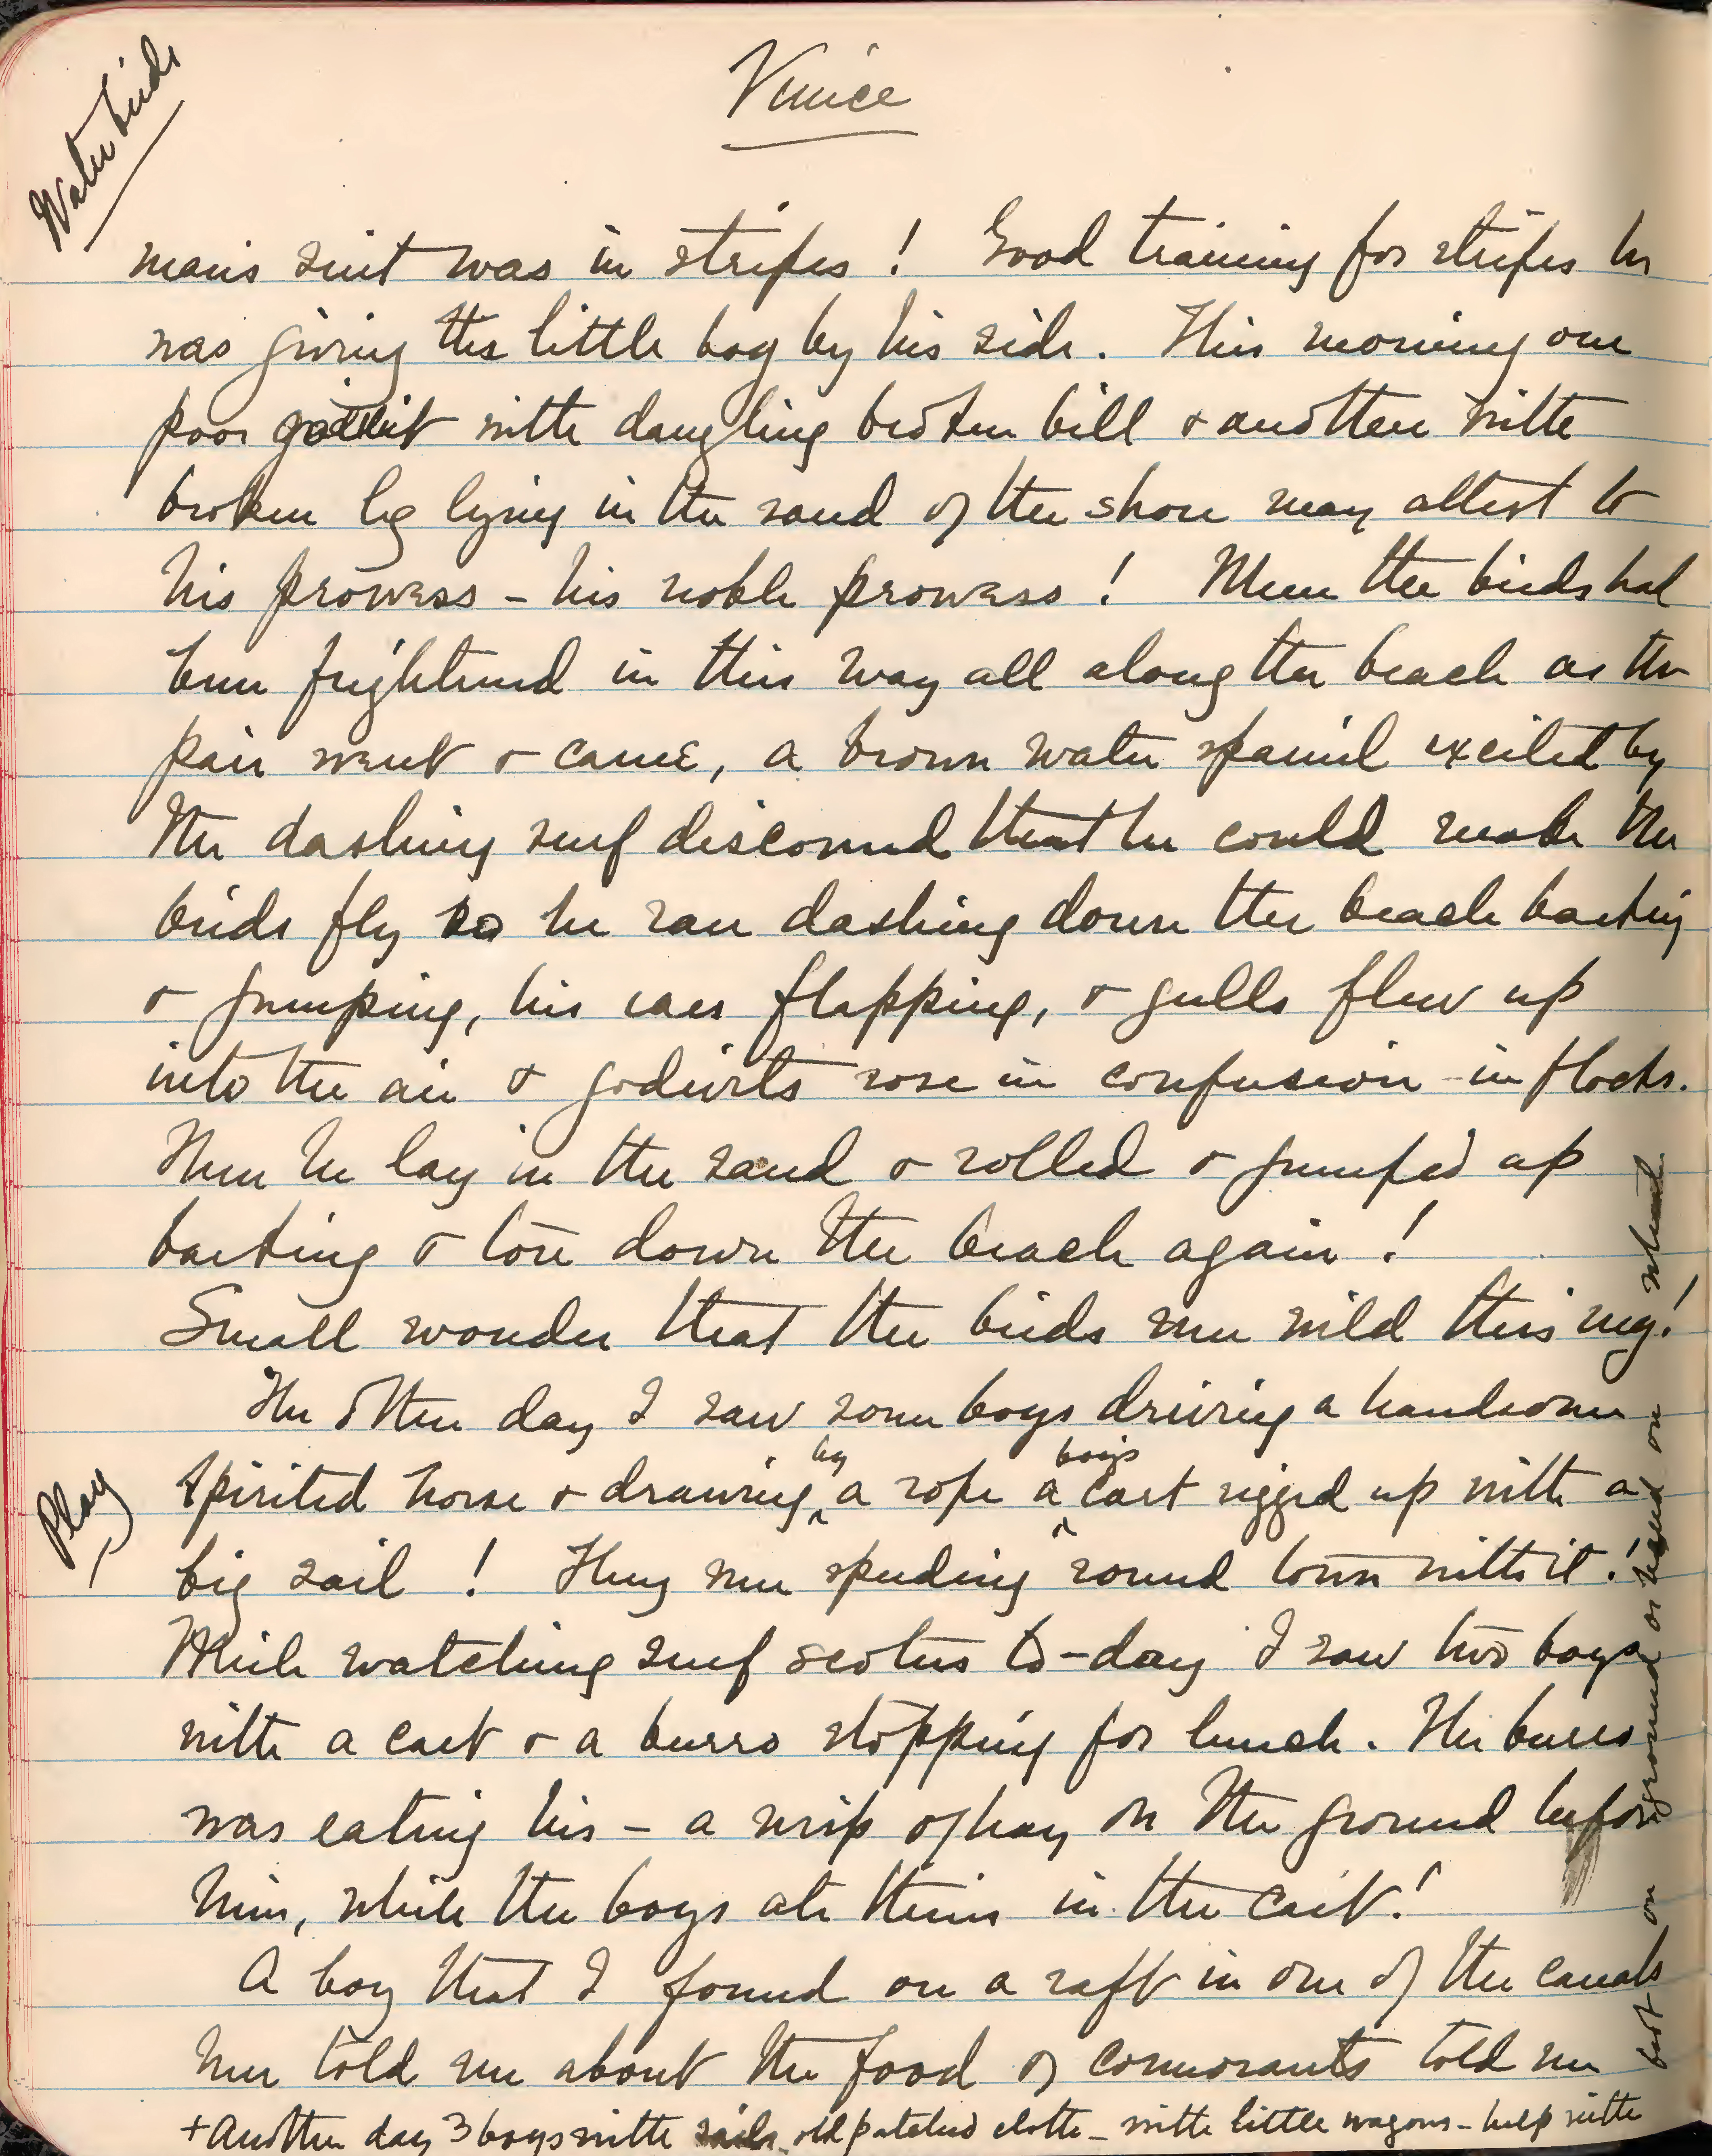 Water birds
Venice
man's suit was in stripes! Good training for stripes he
was giving the little boy by his side. This morning one
poor godwit with dangling broken bill & another with
broken leg lying in the sand of the shore may attest to
his prowess - his noble prowess! When the birds had
been frightened in this way all along the beach as the
pair went & came, a brown water spaniel excited by
the dashing surf discovered that he could make the
birds fly so he ran dashing down the beach barking
& jumping, his ears flapping, & gulls flew up
into the air & godwits rose in confusion - in flocks.
Then he lay in the sand & rolled & jumped up
barking & tore down the beach again!
Small wonder that the birds were wild this mg.!
The other day I saw some boys driving a handsome
Play
spirited horse & drawing by a rope a boy's cart rigged up with a
big sail! They were speeding round town with it!
While watching surf scoters to-day I saw two boys
with a cart & a burro stopping for lunch. The burro
was eating his - a wisp of hay on the ground before
him, while the boys ate theirs in the cart!
A boy that I found on a raft in one of the canals
here told me about the food of cormorants told me
+ Another day 3 boys with sails old patched cloth - with little wagons - help with
foot on ground or on